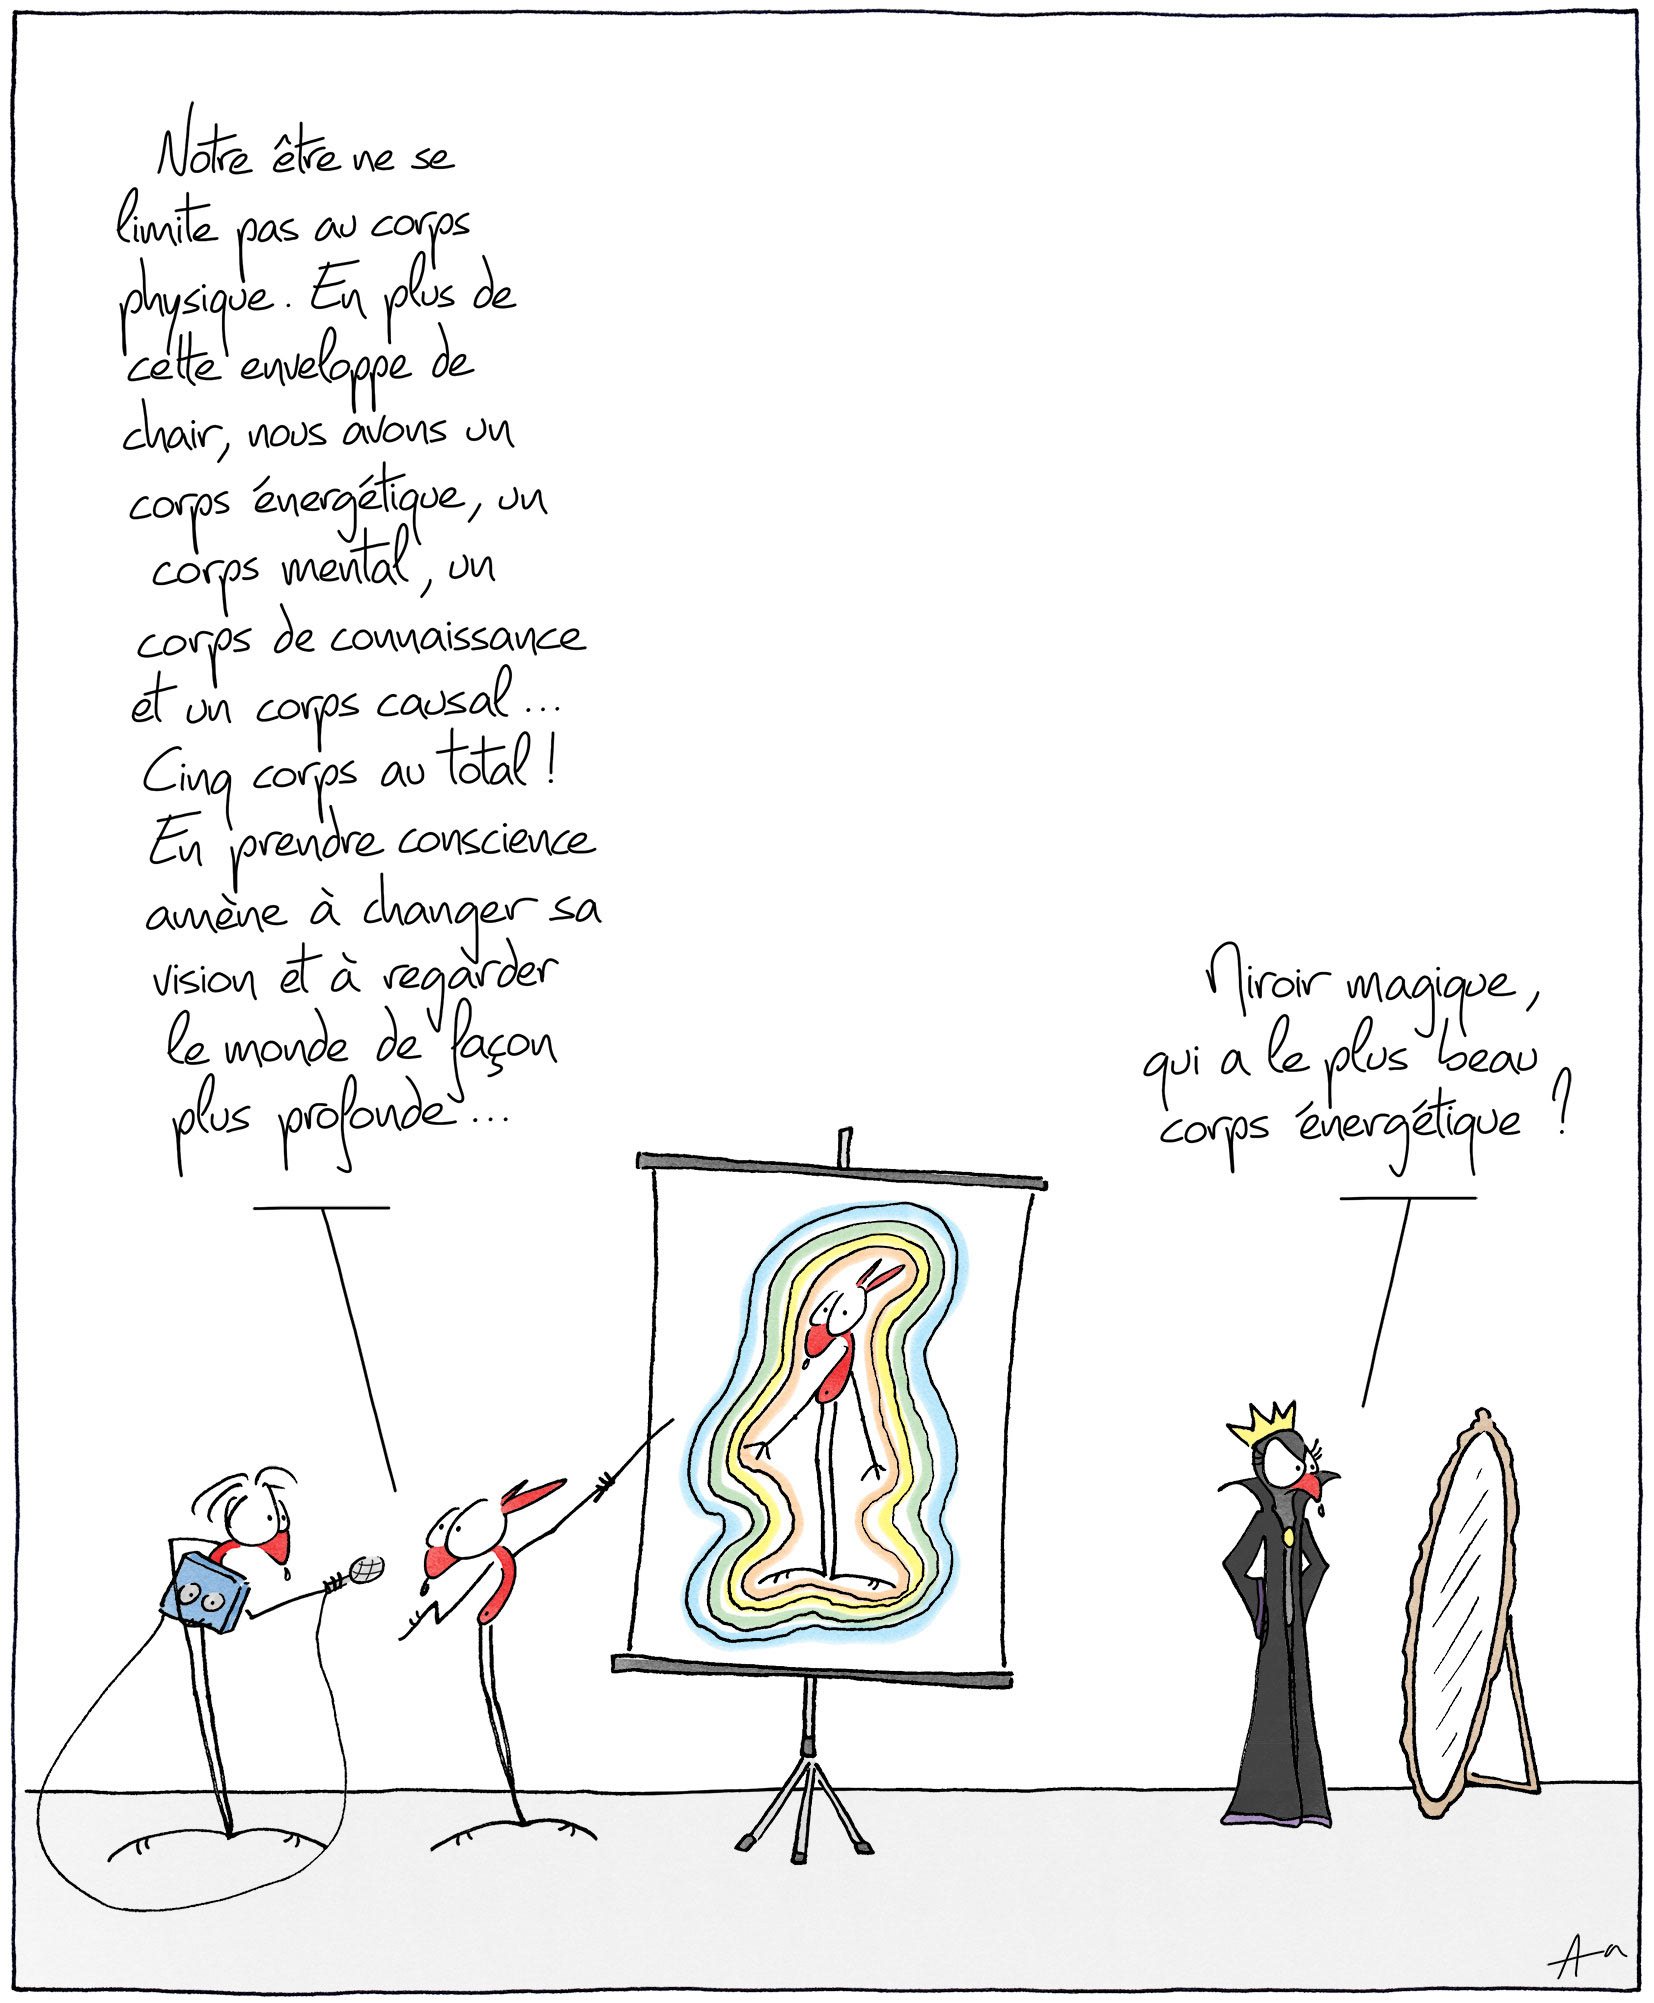 Notre être ne se
limite pas au corps
physique. En plus de
cette enveloppe de
chair, nous avons un
corps énergétique, un
corps mental, un
corps de connaissance
et un corps causal...
Cinq corps au total !
En prendre conscience
amène à changer sa
vision et à regarder
le monde de façon
plus profonde...
Miroir magique,
qui a le plus beau
corps énergétique ?